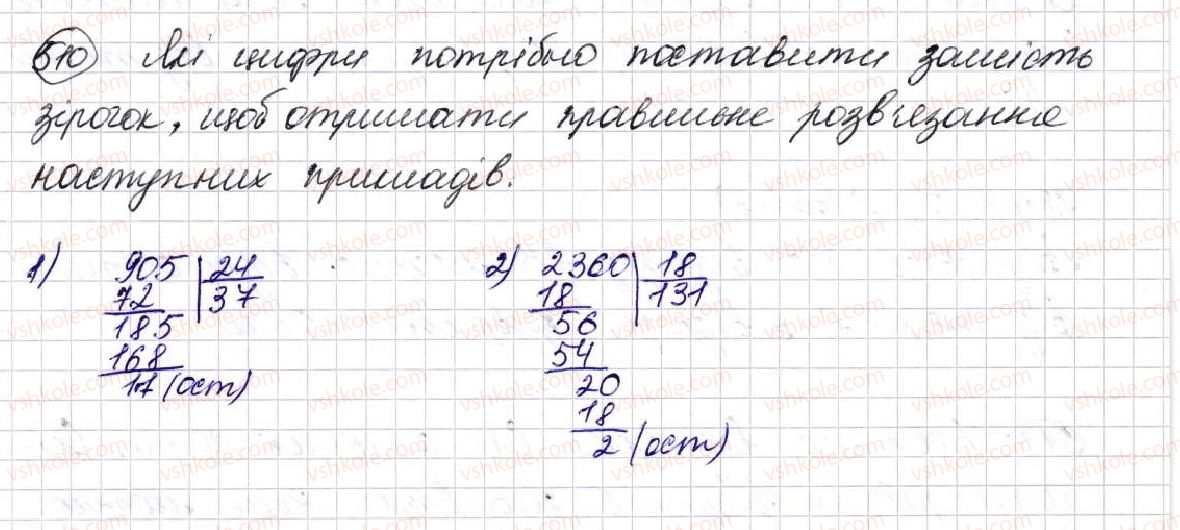 510 Які цифри потрібно поставити замість
зірочок, щоб отримати правильне розв'язання
наступних прикладів.
1) 905 | 24
72 | 37
185
168
17 (ост)
2) 2360 | 18
18 | 131
56
54
20
18
2 (ост)